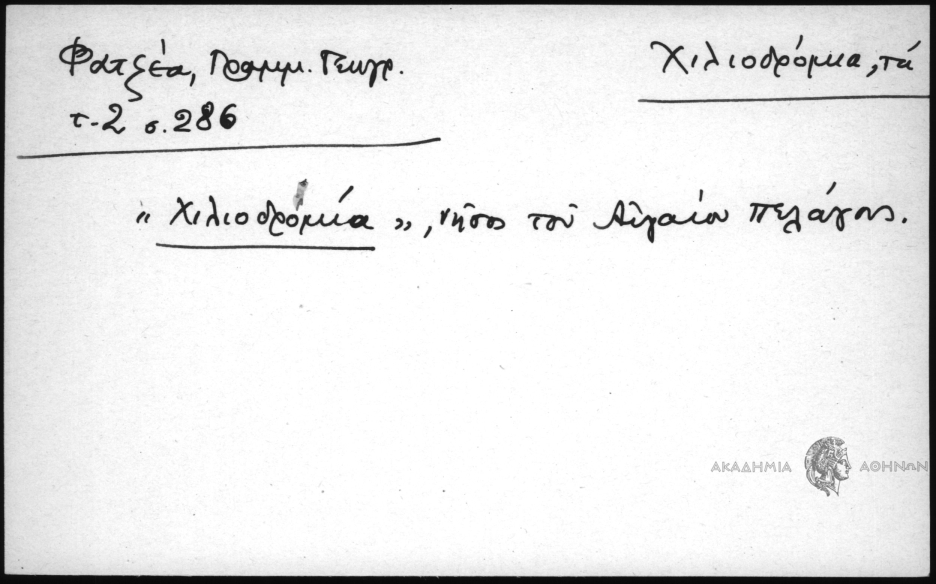 Φατζέα, Γραμμ. Γεωγρ.
τ-2 σ. 286
Χιλιοδρόμια, τά
"Χιλιοδρόμια", νῆσος τοῦ Αἰγαίου πελάγους.
ΑΚΑΔΗΜΙΑ ΑΘΗΝΩΝ